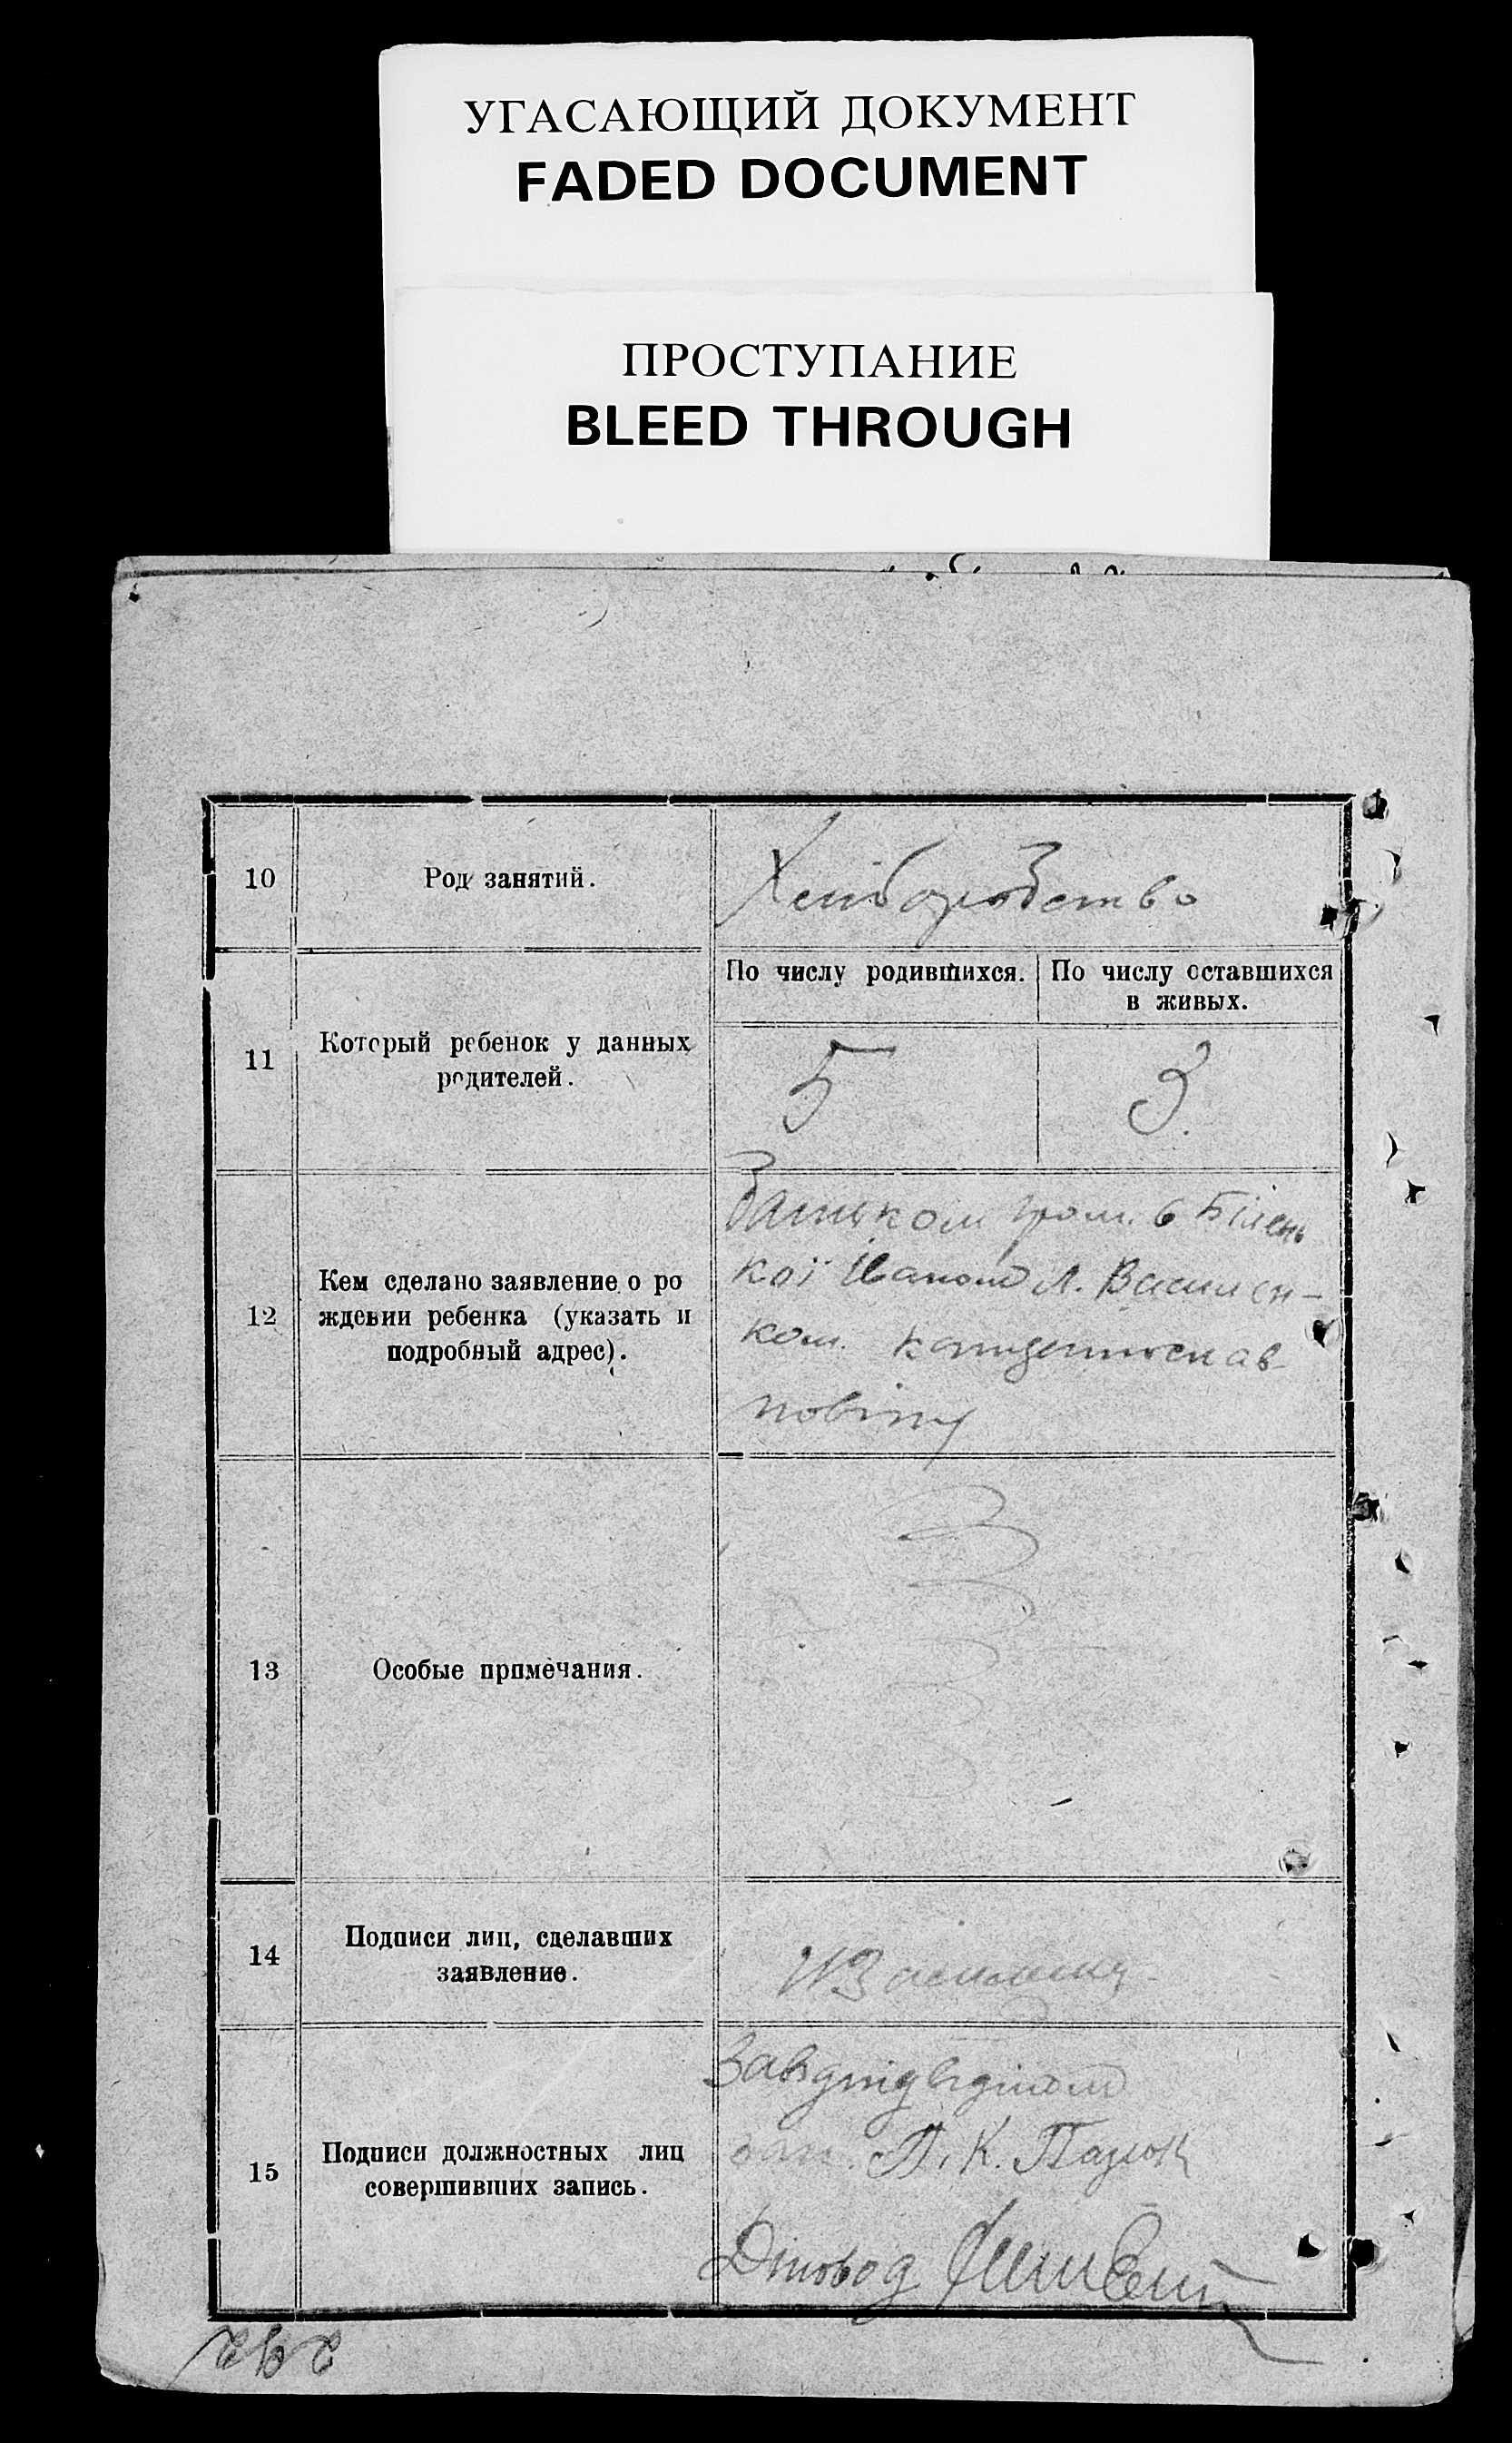 УГАСАЮЩИЙ ДОКУМЕНТ
FADED DOCUMENT
ПРОСТУПАНИЕ
BLEED THROUGH
10
Род занятий.
Хлиборобство
11
Который ребенок у данных
родителей.
По числу родившихся.
По числу оставшихся
в живых.
5
3
12
Кем сделано заявление о ро
ждении ребенка (указать и
подробный адрес).
Батьком гром. с Білень
кої Іваном Л. Василен-
ком.
повіту
13
Особые примечания.
14
Подписи лиц, сделавших
заявление.
15
Подписи должностных лиц
совершивших запись.
П. К.
Діловод